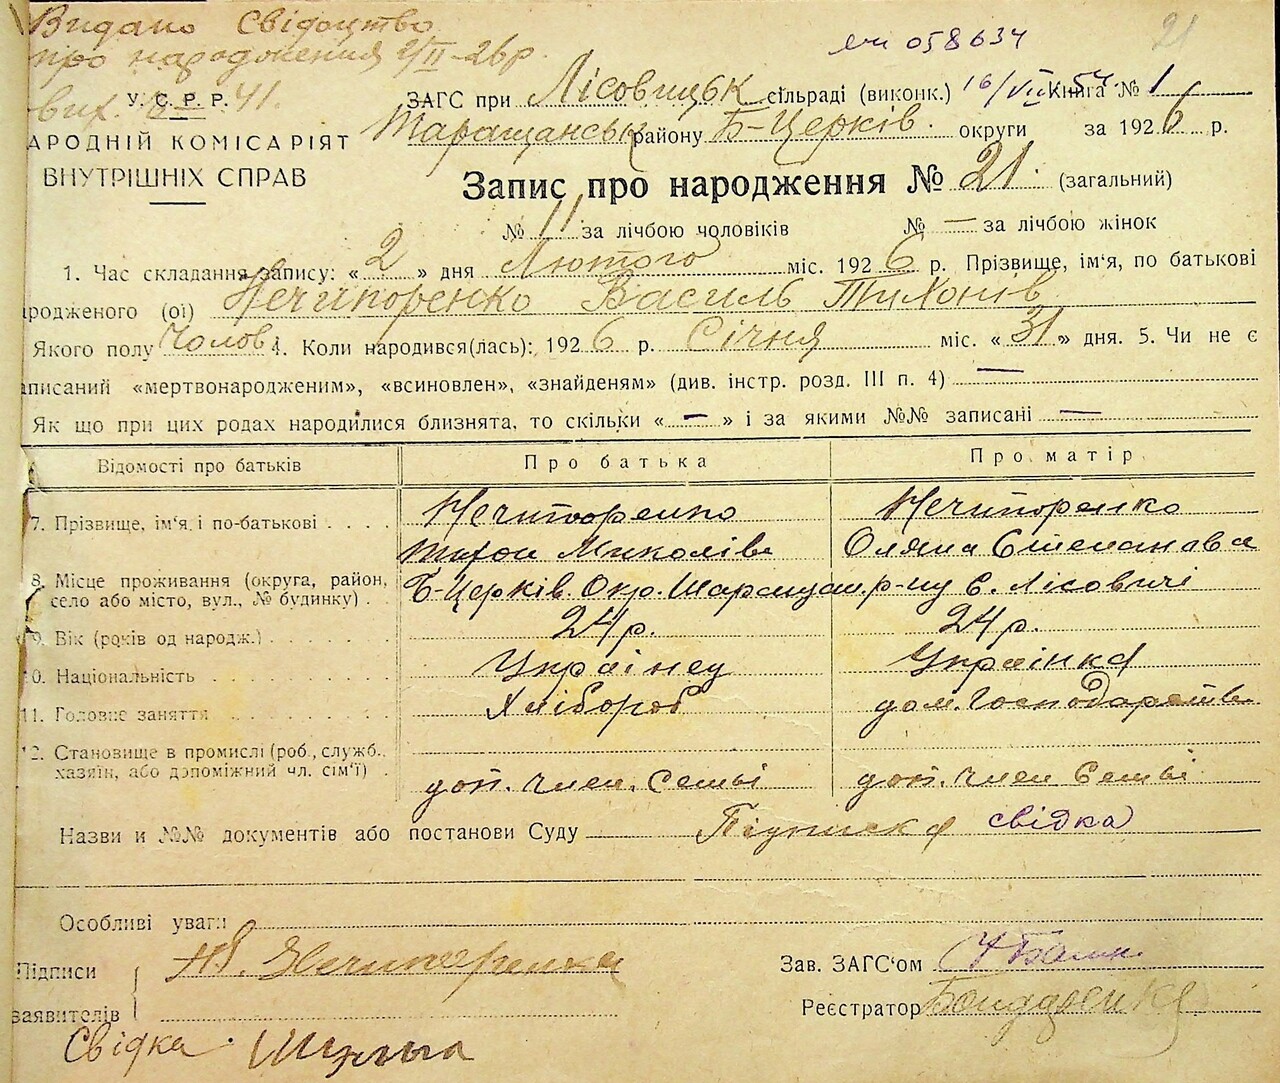 Видано Свідоцтво
про народження 2/II-26р.
вих. 41.
ен 058634
21
У. С. Р. Р.
АРОДНІЙ КОМІСАРІЯТ
ВНУТРІШНІХ СПРАВ
ЗАГС при Лісовицьк сільраді (виконк.) 16/VII 54 Книга № 1
Таращанськ району Б-Церків. округи за 1926 р.
Запис про народження № 21. (загальний)
№ 11 за лічбою чоловіків № — за лічбою жінок
1. Час складання запису: «2» дня Лютого міс. 1926 р. Прізвище, ім'я, по батькові
ародженого (ої) Нечипоренко Василь Тихонів
Якого полу Чолов 4. Коли народився(лась): 1926 р. Січня міс. «31» дня. 5. Чи не є
аписаний «мертвонародженим», «всиновлен», «знайденям» (див. інстр. розд. III п. 4) —
Як що при цих родах народилися близнята, то скільки «—» і за якими №№ записані —
Відомості про батьків Про батька Про матір
7. Прізвище, ім'я і по-батькові Нечипоренко Нечипоренко
Тихон Миколів Оляна Степанова
8. Місце проживання (округа, район, село або місто, вул., № будинку) Б-Церків. Окр. Таращан. р-ну с. Лісовичі
9. Вік (років од народж.) 24 р. 24 р.
10. Національність Українец Українка
11. Головне заняття Хлібороб дом. господарств
12. Становище в промислі (роб., служб.,
хазяїн, або допоміжний чл. сім'ї) доп. член. семьі доп. член семьі
Назви и №№ документів або постанови Суду Підписка свідка
Особливі уваги
Підписи Нечипоренко Зав. ЗАГС'ом
заявителів Реєстратор Бондаренко
Свідка